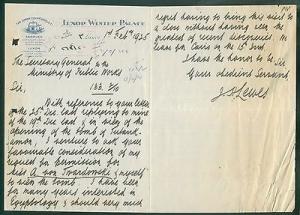 LUXOR WINTER PALACE
LUXOR
1st Feb. 1925
The Secretary General to the
Ministry of Public Works
Sir,
With reference to your letter
on the 25th Dec. last replying to mine
of the 19th Dec. last, & in view of the
opening of the tomb of Tutank-
amon, I venture to ask your
favourable consideration of my
request for permission for
Miss A von Twardowski & myself
to view the tomb. I have been
for many years interested in
Egyptology & should very much
regret having to bring this visit to
a close without having seen the
greatest of recent discoveries. We
leave for Cairo on the 15th inst.
I have the honor to be
Sir
Your obedient Servant